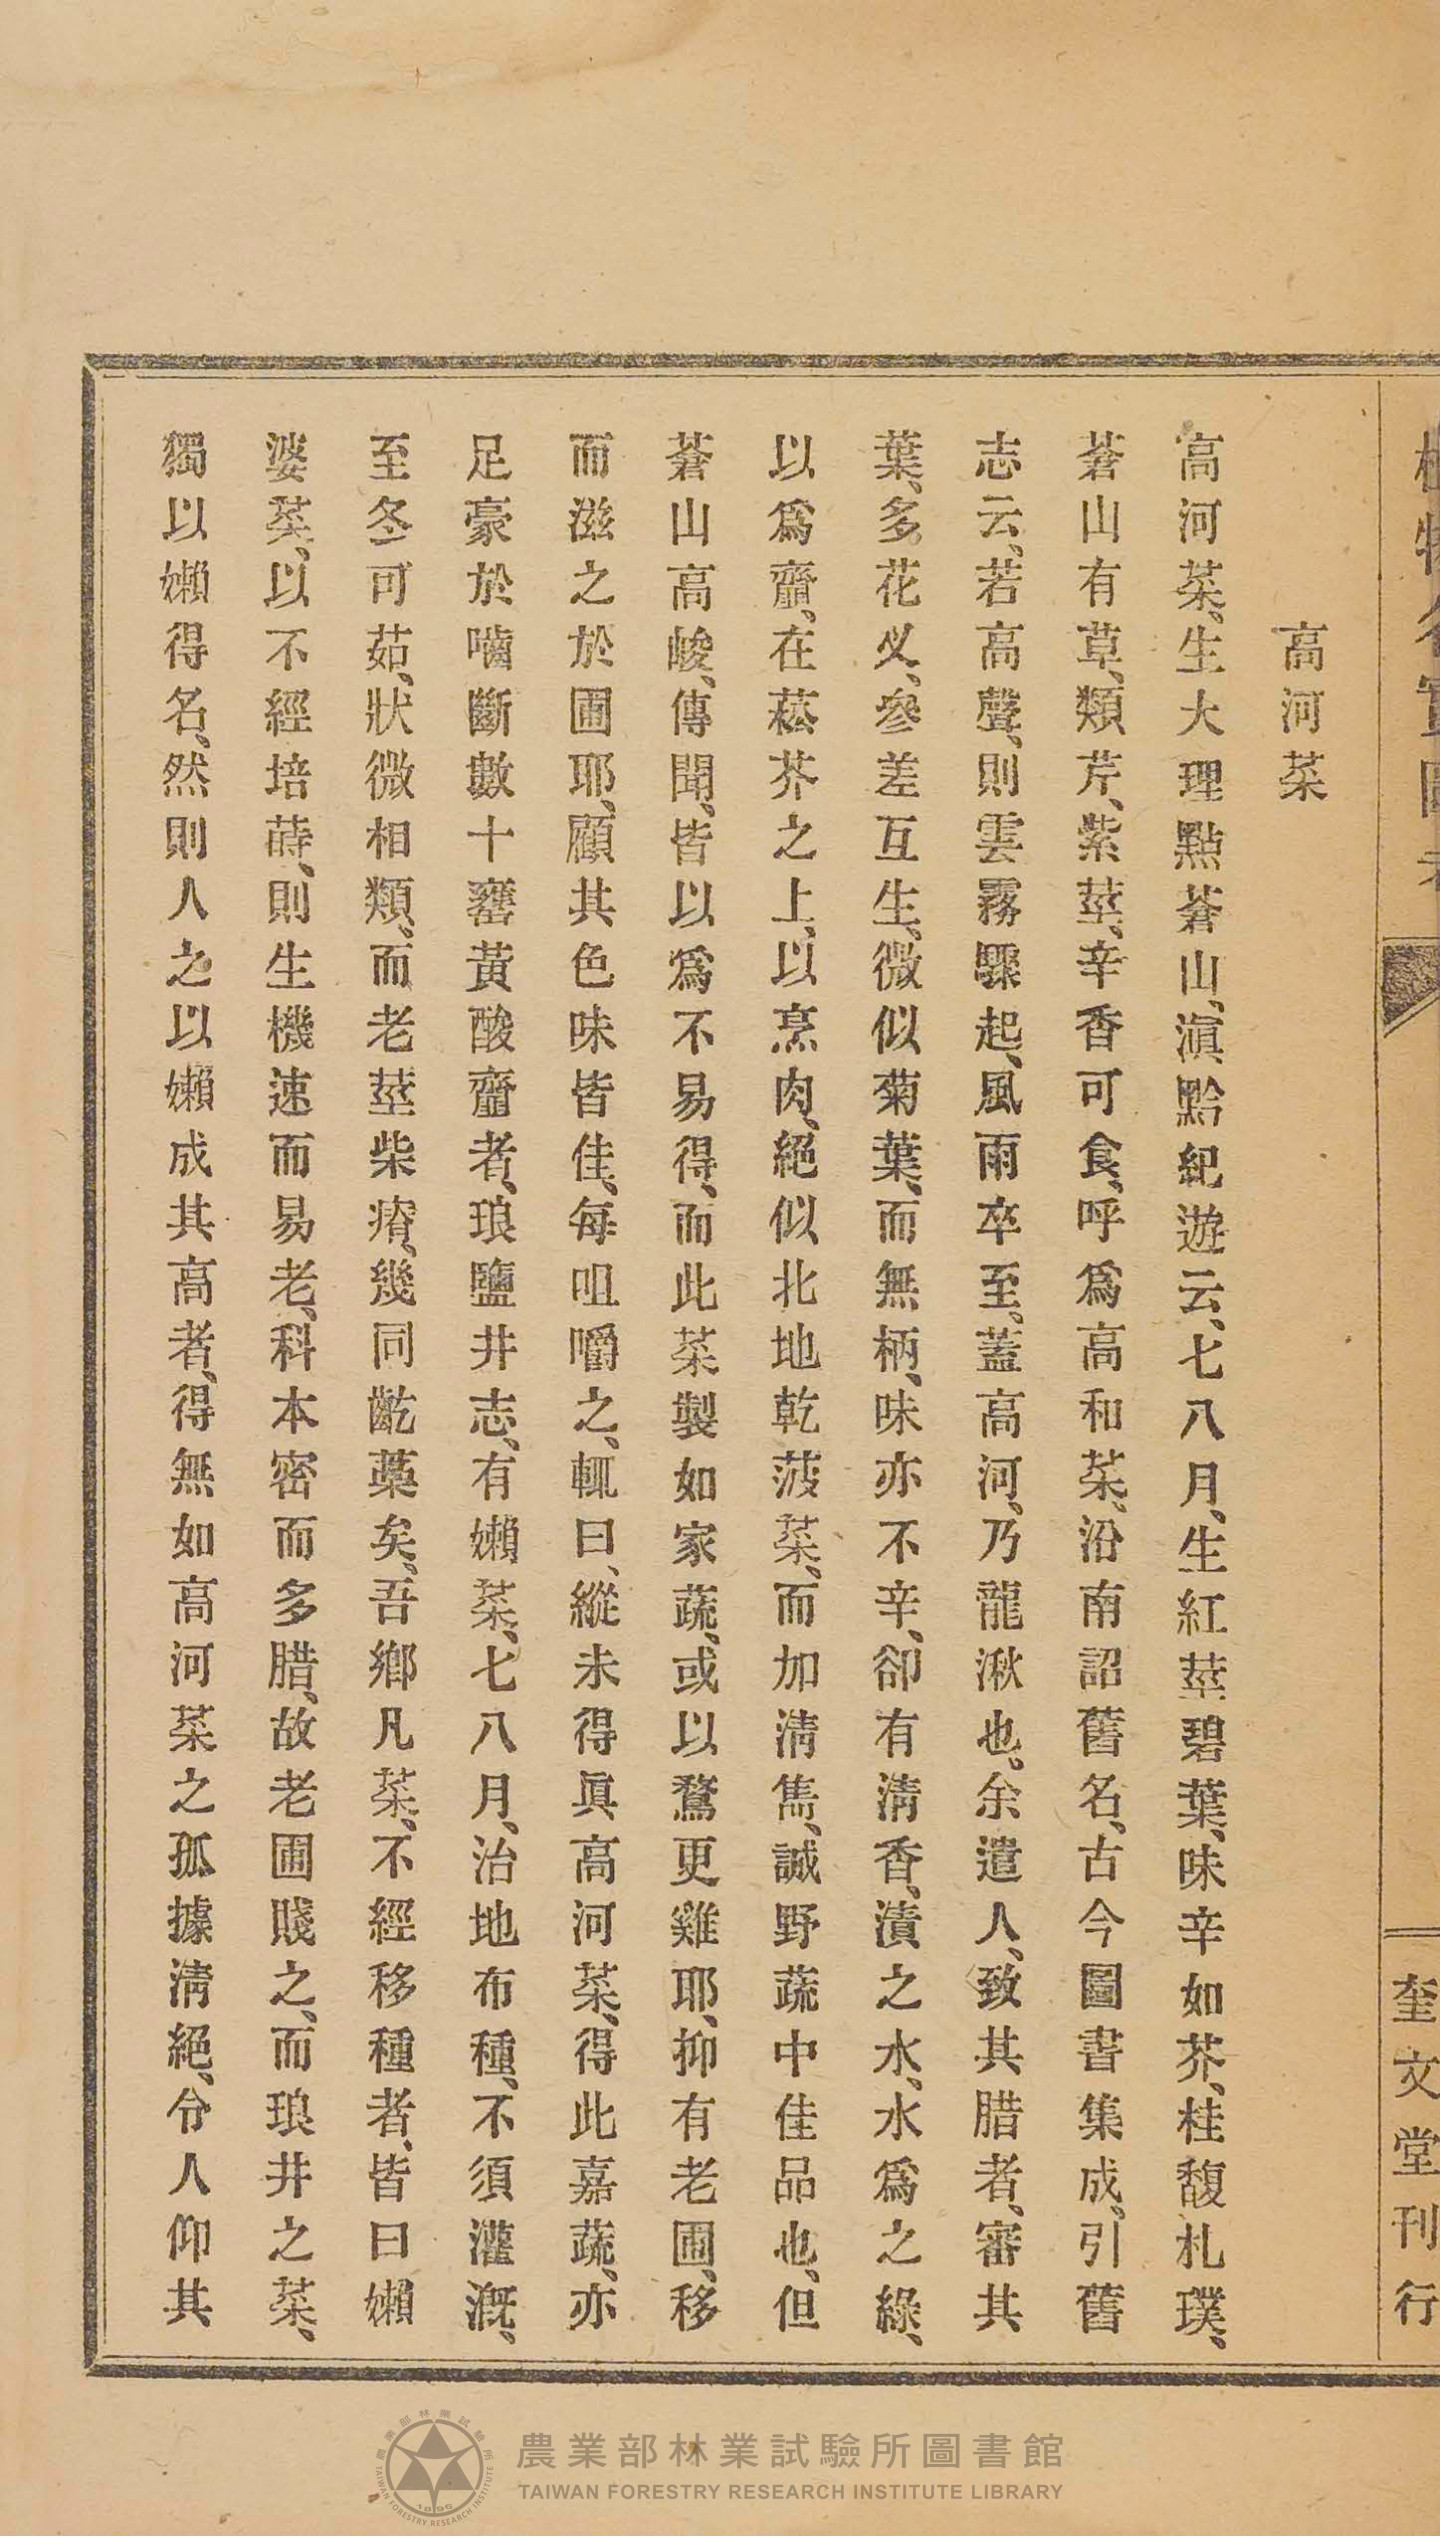 植物名實圖考
奎文堂刊行
高河菜
高河菜、生大理點蒼山、滇黔紀遊云、七八月、生紅莖碧葉、味辛如芥、桂馥札璞、
蒼山有草、類芹、紫莖、辛香可食、呼爲高和菜、沿南詔舊名、古今圖書集成、引舊
志云、若高聲、則雲霧驟起、風雨卒至、蓋高河、乃龍湫也、余遣人、致其腊者、審其
葉、多花义、參差互生、微似菊葉、而無柄、味亦不辛、卻有淸香、漬之水、水爲之綠、
以爲齏、在菘芥之上、以烹肉、絕似北地乾菠菜、而加淸雋、誠野蔬中佳品也、但
蒼山高峻、傳聞、皆以爲不易得、而此菜製如家蔬、或以鶩更雞耶、抑有老圃、移
而滋之於圃耶、顧其色味皆佳、每咀嚼之、輒曰、縱未得眞高河菜、得此嘉蔬、亦
足豪於嚙斷數十罋黃酸齏者、琅鹽井志、有嬾菜、七八月、治地布種、不須灌漑、
至冬可茹、狀微相類、而老莖柴瘠、幾同齕藁矣、吾鄉凡菜、不經移種者、皆曰嬾
婆菜、以不經培蒔、則生機速而易老、科本密而多腊、故老圃賤之、而琅井之菜、
獨以嬾得名、然則人之以嬾成其高者、得無如高河菜之孤據淸絕、令人仰其
農業部林業試驗所圖書館
TAIWAN FORESTRY RESEARCH INSTITUTE LIBRARY
農業部林業試驗所
TAIWAN FORESTRY RESEARCH INSTITUTE
1896